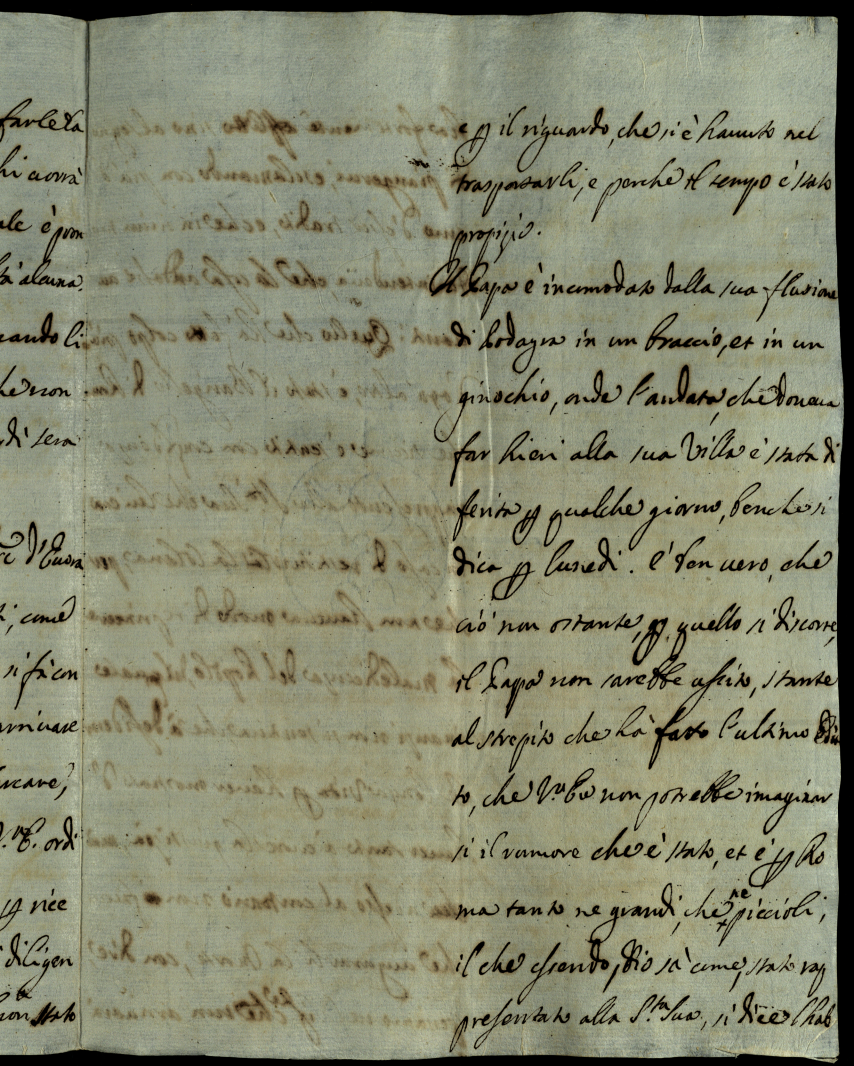 farle la
hi uorrà
ale è pron
tà alcuna,
uando li
he non
di sera
d'Euora
i, come
si fà con
arriuare
ercare,
V. E. ordi
p rice
diligen
non stato
e p il riguardo, che si è hauuto nel
trasportarli, e perche il tempo è stato
propizio.
Il Papa è incomodato dalla sua flusione
di Podagra in un braccio, et in un
ginochio, onde l'andata, che doueua
far hieri alla sua Villa è stata di
ferita p qualche giorno, benche si
dica p lunedi. È ben uero, che
ciò non ostante, p quello si discorre,
il Papa non sarebbe uscito, stante
al strepito che hà fatto l'ultimo Edit
to, che V. E. non potrebbe imaginar
si il rumore che è stato, et è p Ro
ma tanto ne grandi, che ne piccioli,
il che essendo, Dio sà come, stato rap
presentato alla S.tà Sua, si dice l'hab